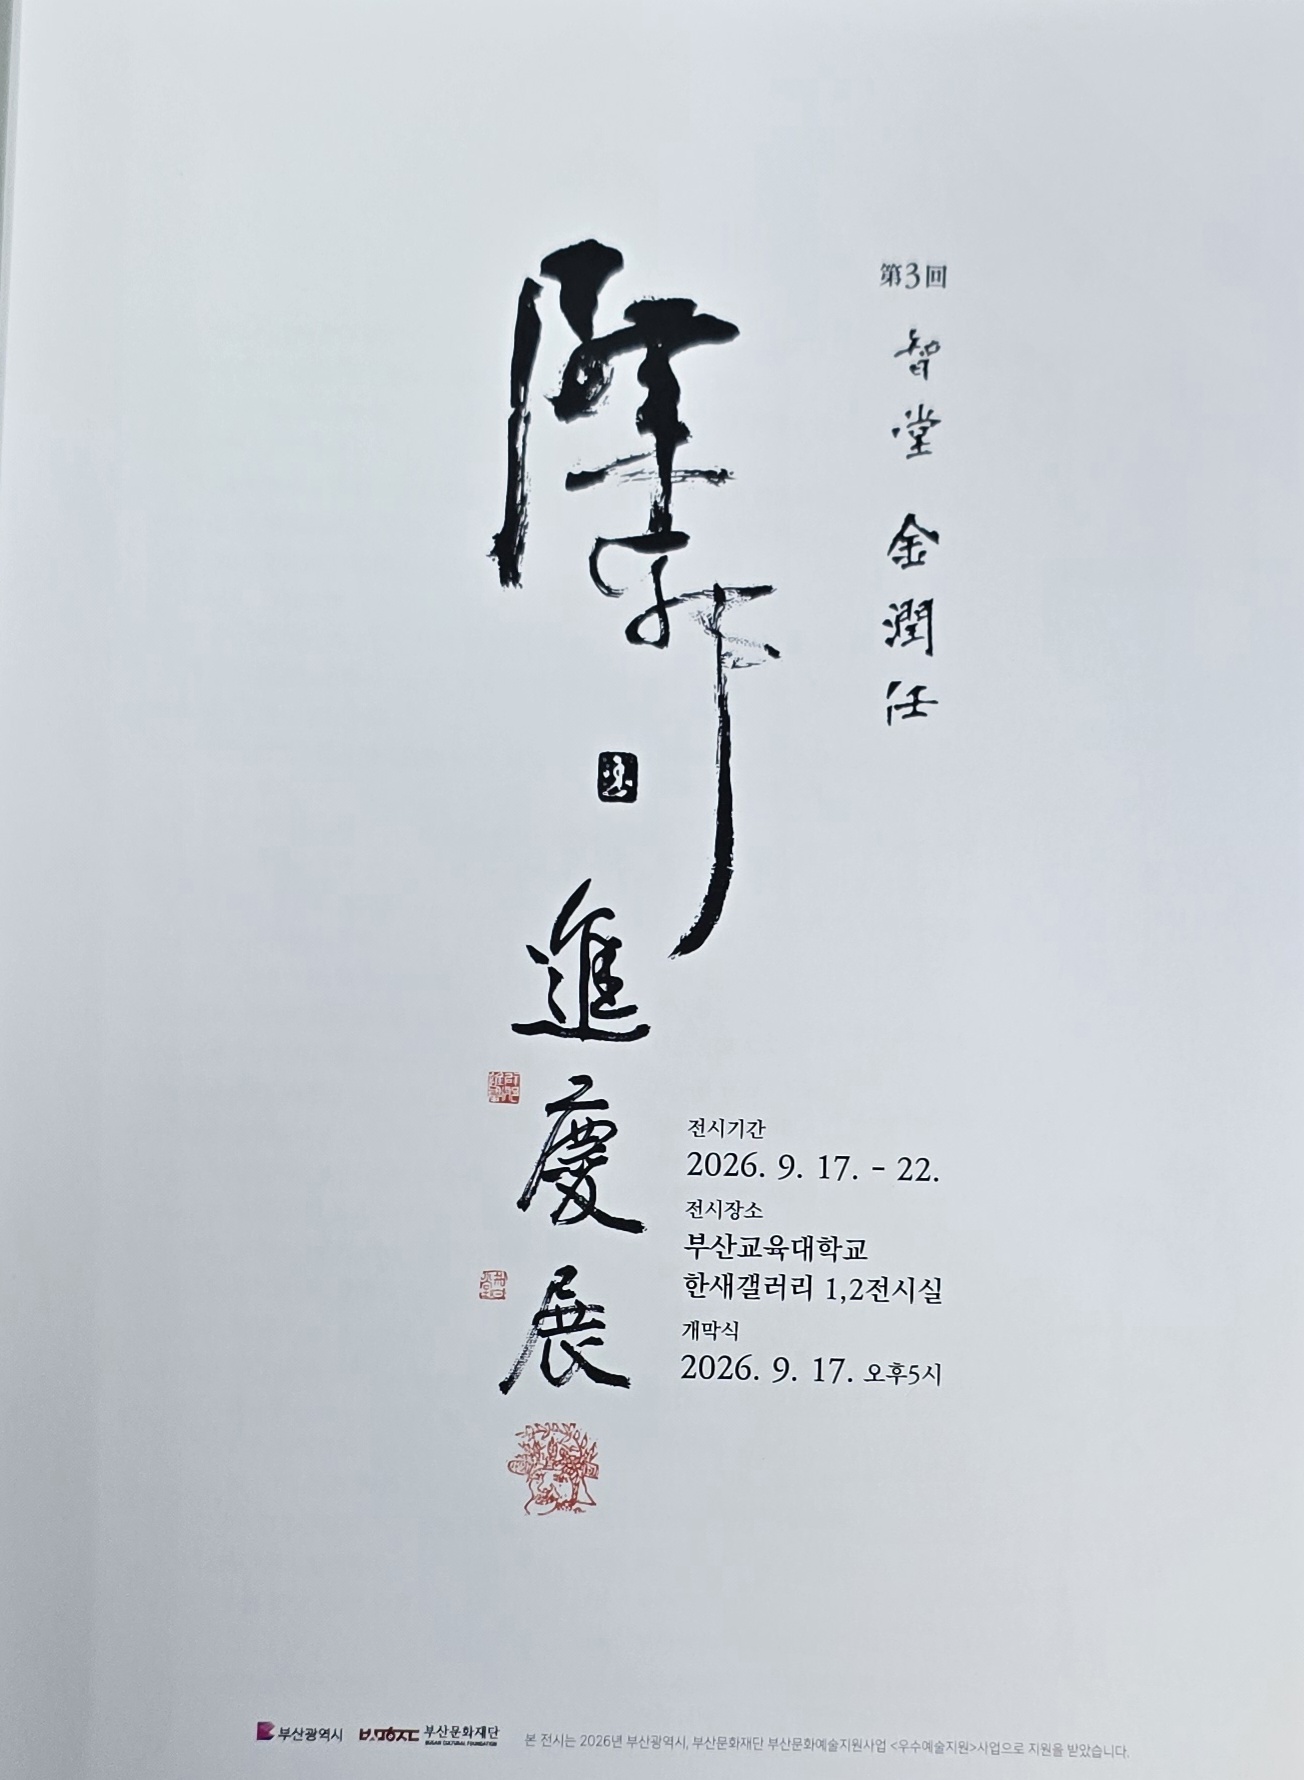 第3回
智堂 金潤任
進慶展
전시기간
2026. 9. 17. - 22.
전시장소
부산교육대학교
한새갤러리 1,2전시실
개막식
2026. 9. 17. 오후5시
부산광역시
부산문화재단
BUSAN CULTURAL FOUNDATION
본 전시는 2026년 부산광역시, 부산문화재단 부산문화예술지원사업 <우수예술지원>사업으로 지원을 받았습니다.